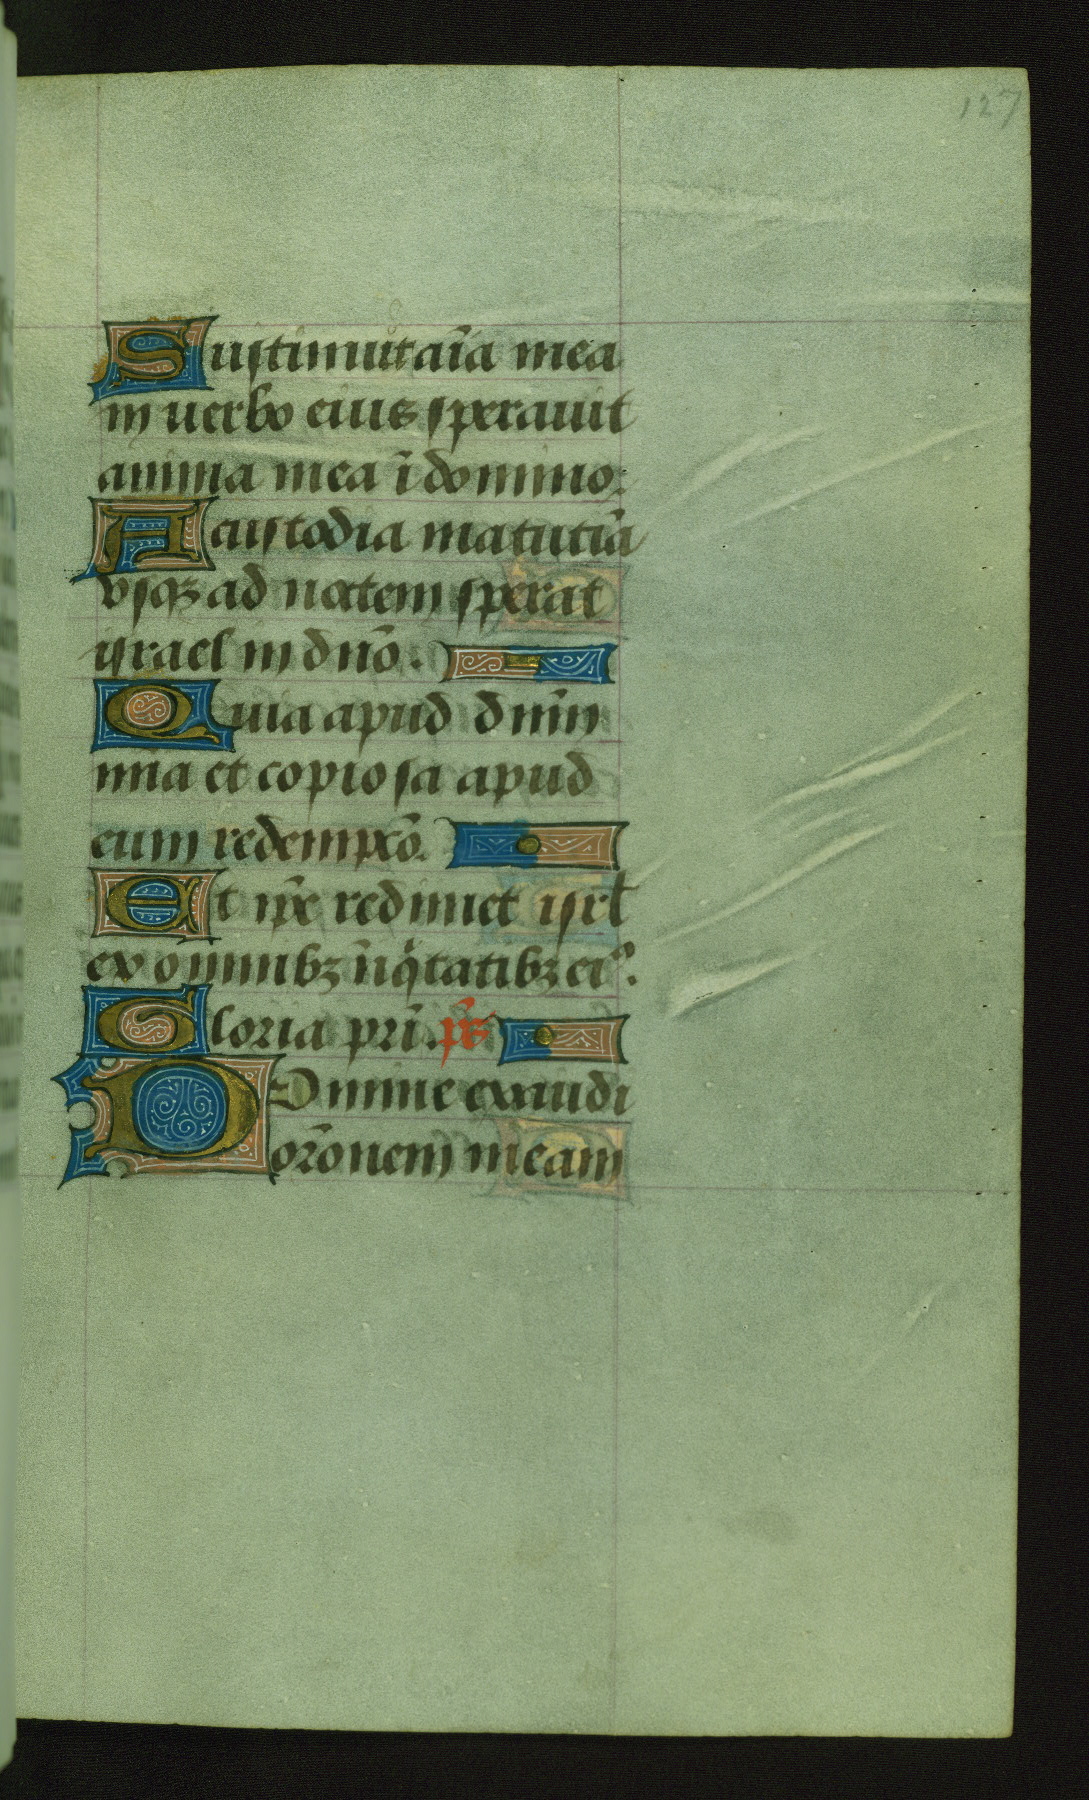 127
Sustinuit aīa mea
in uerbo eius sperauit
anima mea ī domino:
A custodia matutīa
vsqꝫ ad noctem sperat
israel in dn̄o.
Quia apud dn̄m
mīa et copiosa apud
eum redempcō.
Et ip̄e redimet isrl̄
ex om̄nibꝫ īiqͥtatibꝫ eiꝰ.
Gloria pr̄i. ps̄
Domine exaudi
or̄onem meam